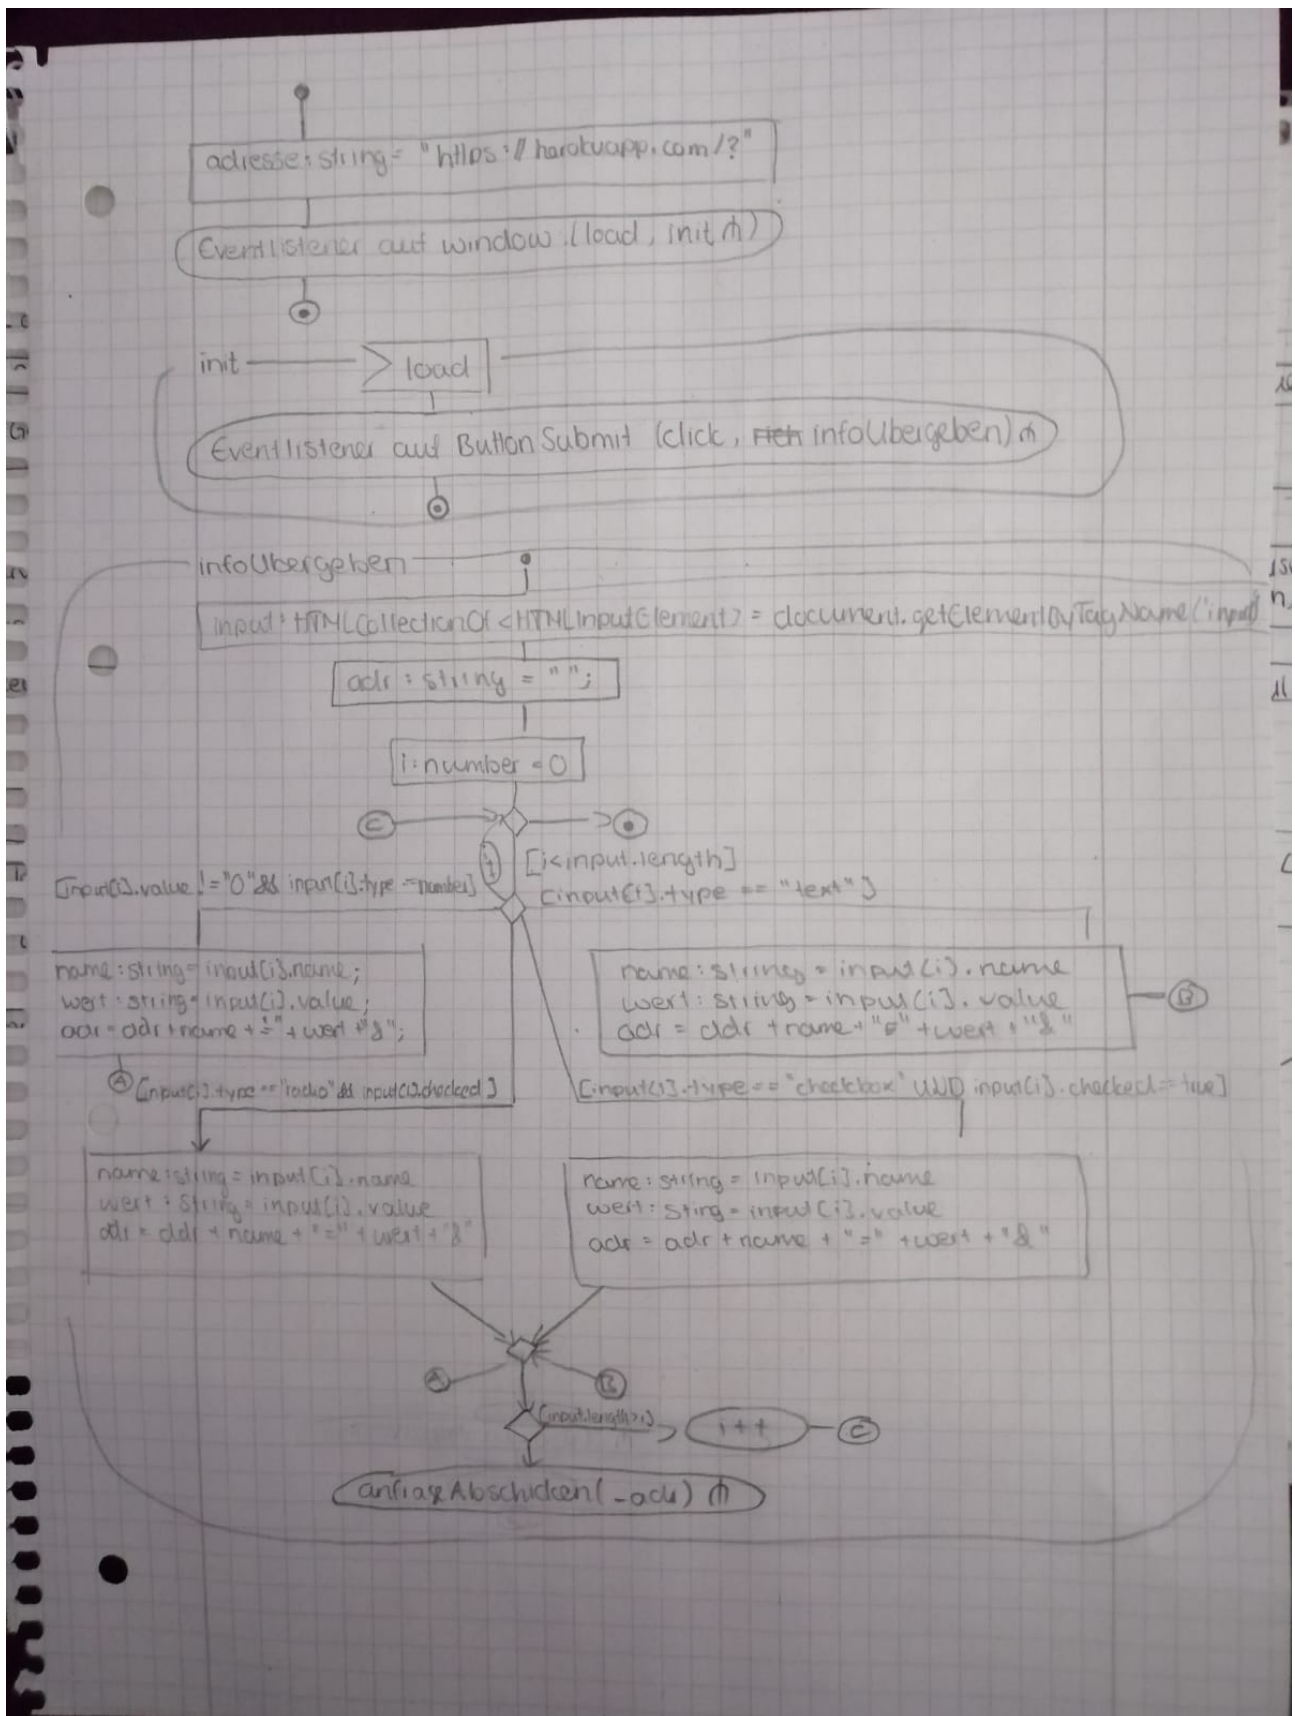 adresse: string = "https://herokuapp.com/?"
Eventlistener auf window (load, init)
init
load
Eventlistener auf Button Submit (click, infoUbergeben)
infoUbergeben
input: HTMLCollectionOf <HTMLInputElement> = document.getElementByTagName('input')
adr : string = " ";
i: number = 0
C
[i<input.length]
[input[i].value != "0" && input[i].type = number]
[input[i].type == "text"]
name: string = input[i].name;
wert: string = input[i].value;
adr = adr + name + "=" + wert + "&";
name: string = input[i].name
wert: string = input[i].value
adr = adr + name + "=" + wert + "&"
B
A
[input[i].type == "radio" && input[i].checked]
[input[i].type == "checkbox" UND input[i].checked == true]
name: string = input[i].name
wert: String = input[i].value
adr = adr + name + "=" + wert + "&"
name: string = input[i].name
wert: Sting = input[i].value
adr = adr + name + "=" + wert + "&"
A
B
[input.length>i]
i++
C
anfrageAbschicken(_adr)